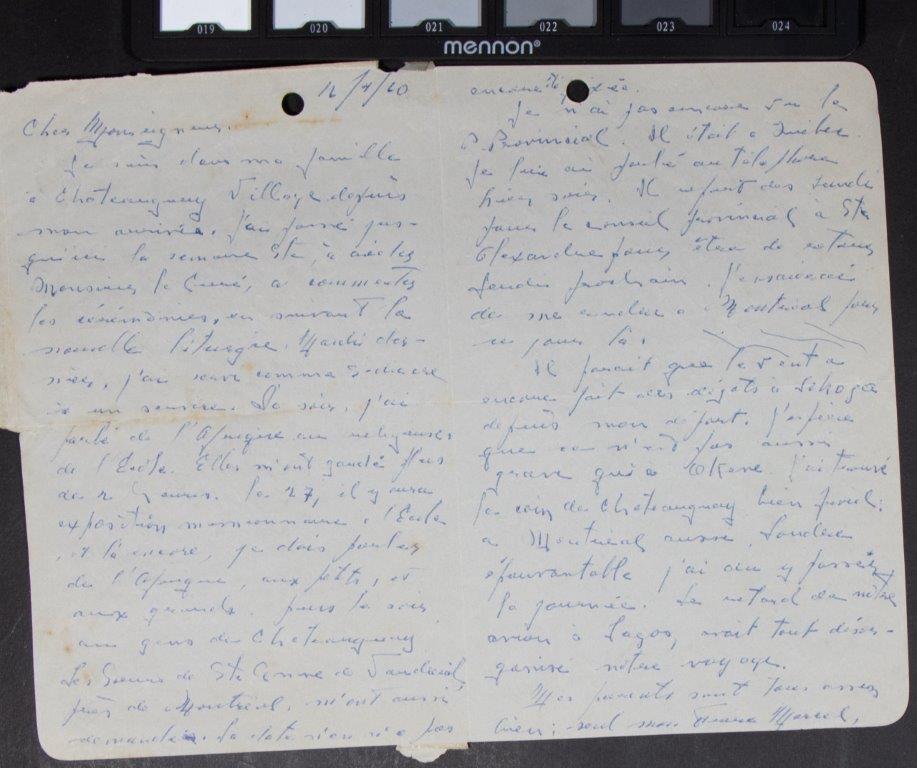 019 020 021 022 023 024
mennon®
12/4/60
Cher Monseigneur,
Je suis dans ma famille
à Châteauguay Village depuis
mon arrivée. J'ai passé jus-
qu'ici la semaine Ste, à aider
Monsieur le Curé, à commenter
les cérémonies, en suivant la
nouvelle liturgie. Mardi der-
nier, j'ai servi comme s-diacre
à un service. Le soir, j'ai
parlé de l'Afrique aux religieuses
de l'École. Elles m'ont gardé plus
de 2 heures. Le 27, il y aura
exposition missionnaire à l'École
, et là encore, je dois parler
de l'Afrique, aux petits, et
aux grands. Puis le soir
aux gens de Châteauguay.
Les Soeurs de Ste Anne de Vaudreuil,
près de Montréal, m'ont aussi
demandé. La date n'en n'a pas
encore été fixée.
Je n'ai pas encore vu le
P. Provincial. Il était à Québec.
Je lui ai parlé au téléphone
hier soir. Il repart dès lundi
pour le conseil provincial à St
Alexandre pour être de retour
Jeudi prochain. J'essaierai
de me rendre à Montréal pour
ce jour là.
Il paraît que le vent a
encore fait des dégats à Lokoja
depuis mon départ. J'espère
que ce n'est pas aussi
grave qu'à Okene. J'ai trouvé
le coin de Châteauguay bien froid:
à Montréal aussi. Londres
épouvantable j'ai du y passer
la journée. Le retard de nôtre
avion à Lagos, avait tout désor-
ganisé nôtre voyage.
Mes parents sont tous assez
bien: seul mon Frère Marcel,